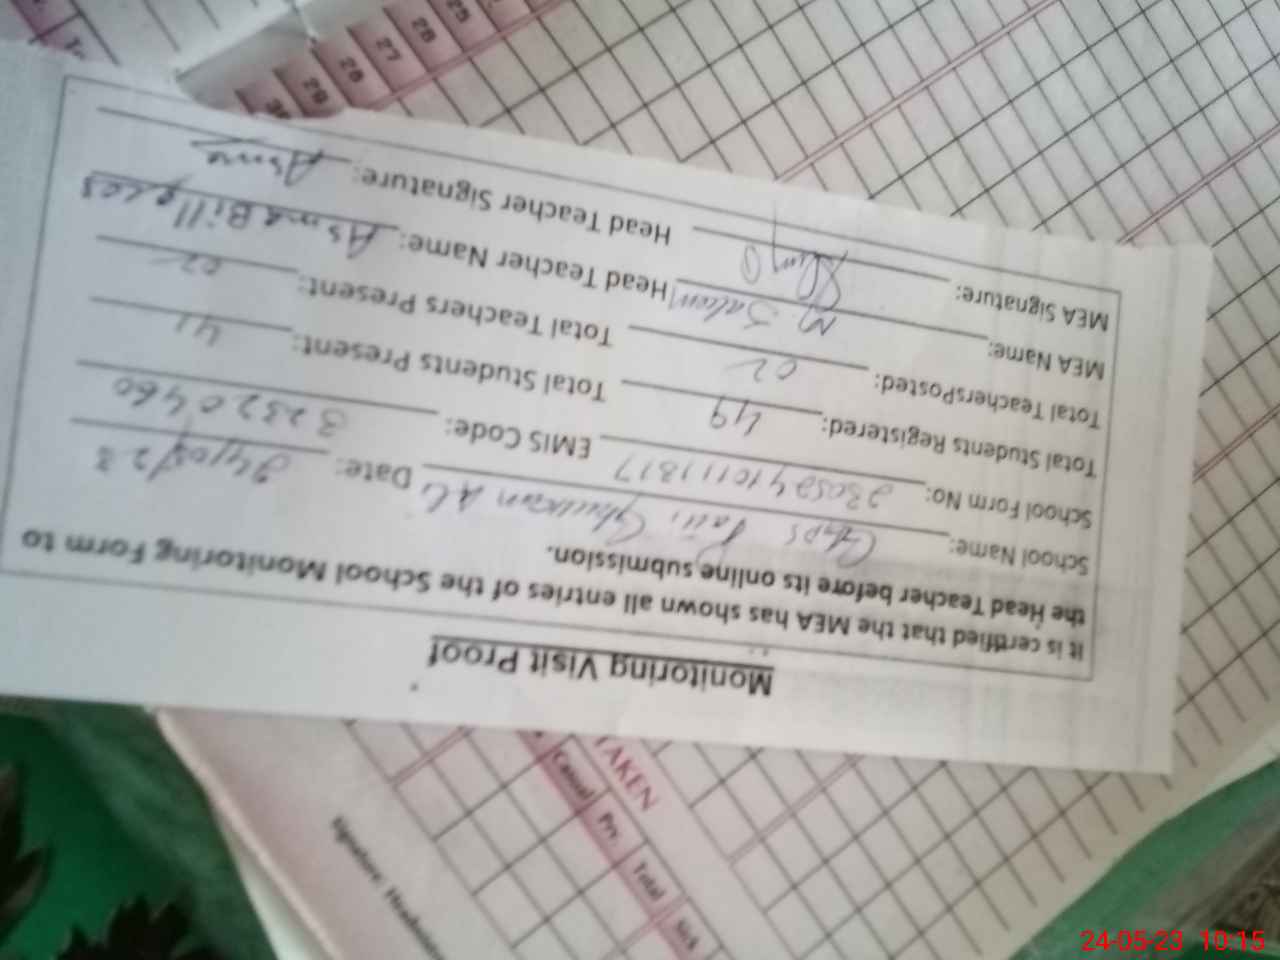 Monitoring Visit Proof
It is certified that the MEA has shown all entries of the School Monitoring Form to
the Head Teacher before its online submission.
School Name: GGPS Ghulam Ali Date: 24/05/23
School Form No: 23052410111817 EMIS Code: 32320460
Total Students Registered: 49 Total Students Present: 41
Total TeachersPosted: 02 Total Teachers Present: 02
MEA Name: M. Saleem Head Teacher Name: Asma Bill
MEA Signature: Head Teacher Signature: Asma
25
26
27
28
29
30
TAKEN
Casual
Prv.
Total
Sick
Signature:
24-05-23 10:15